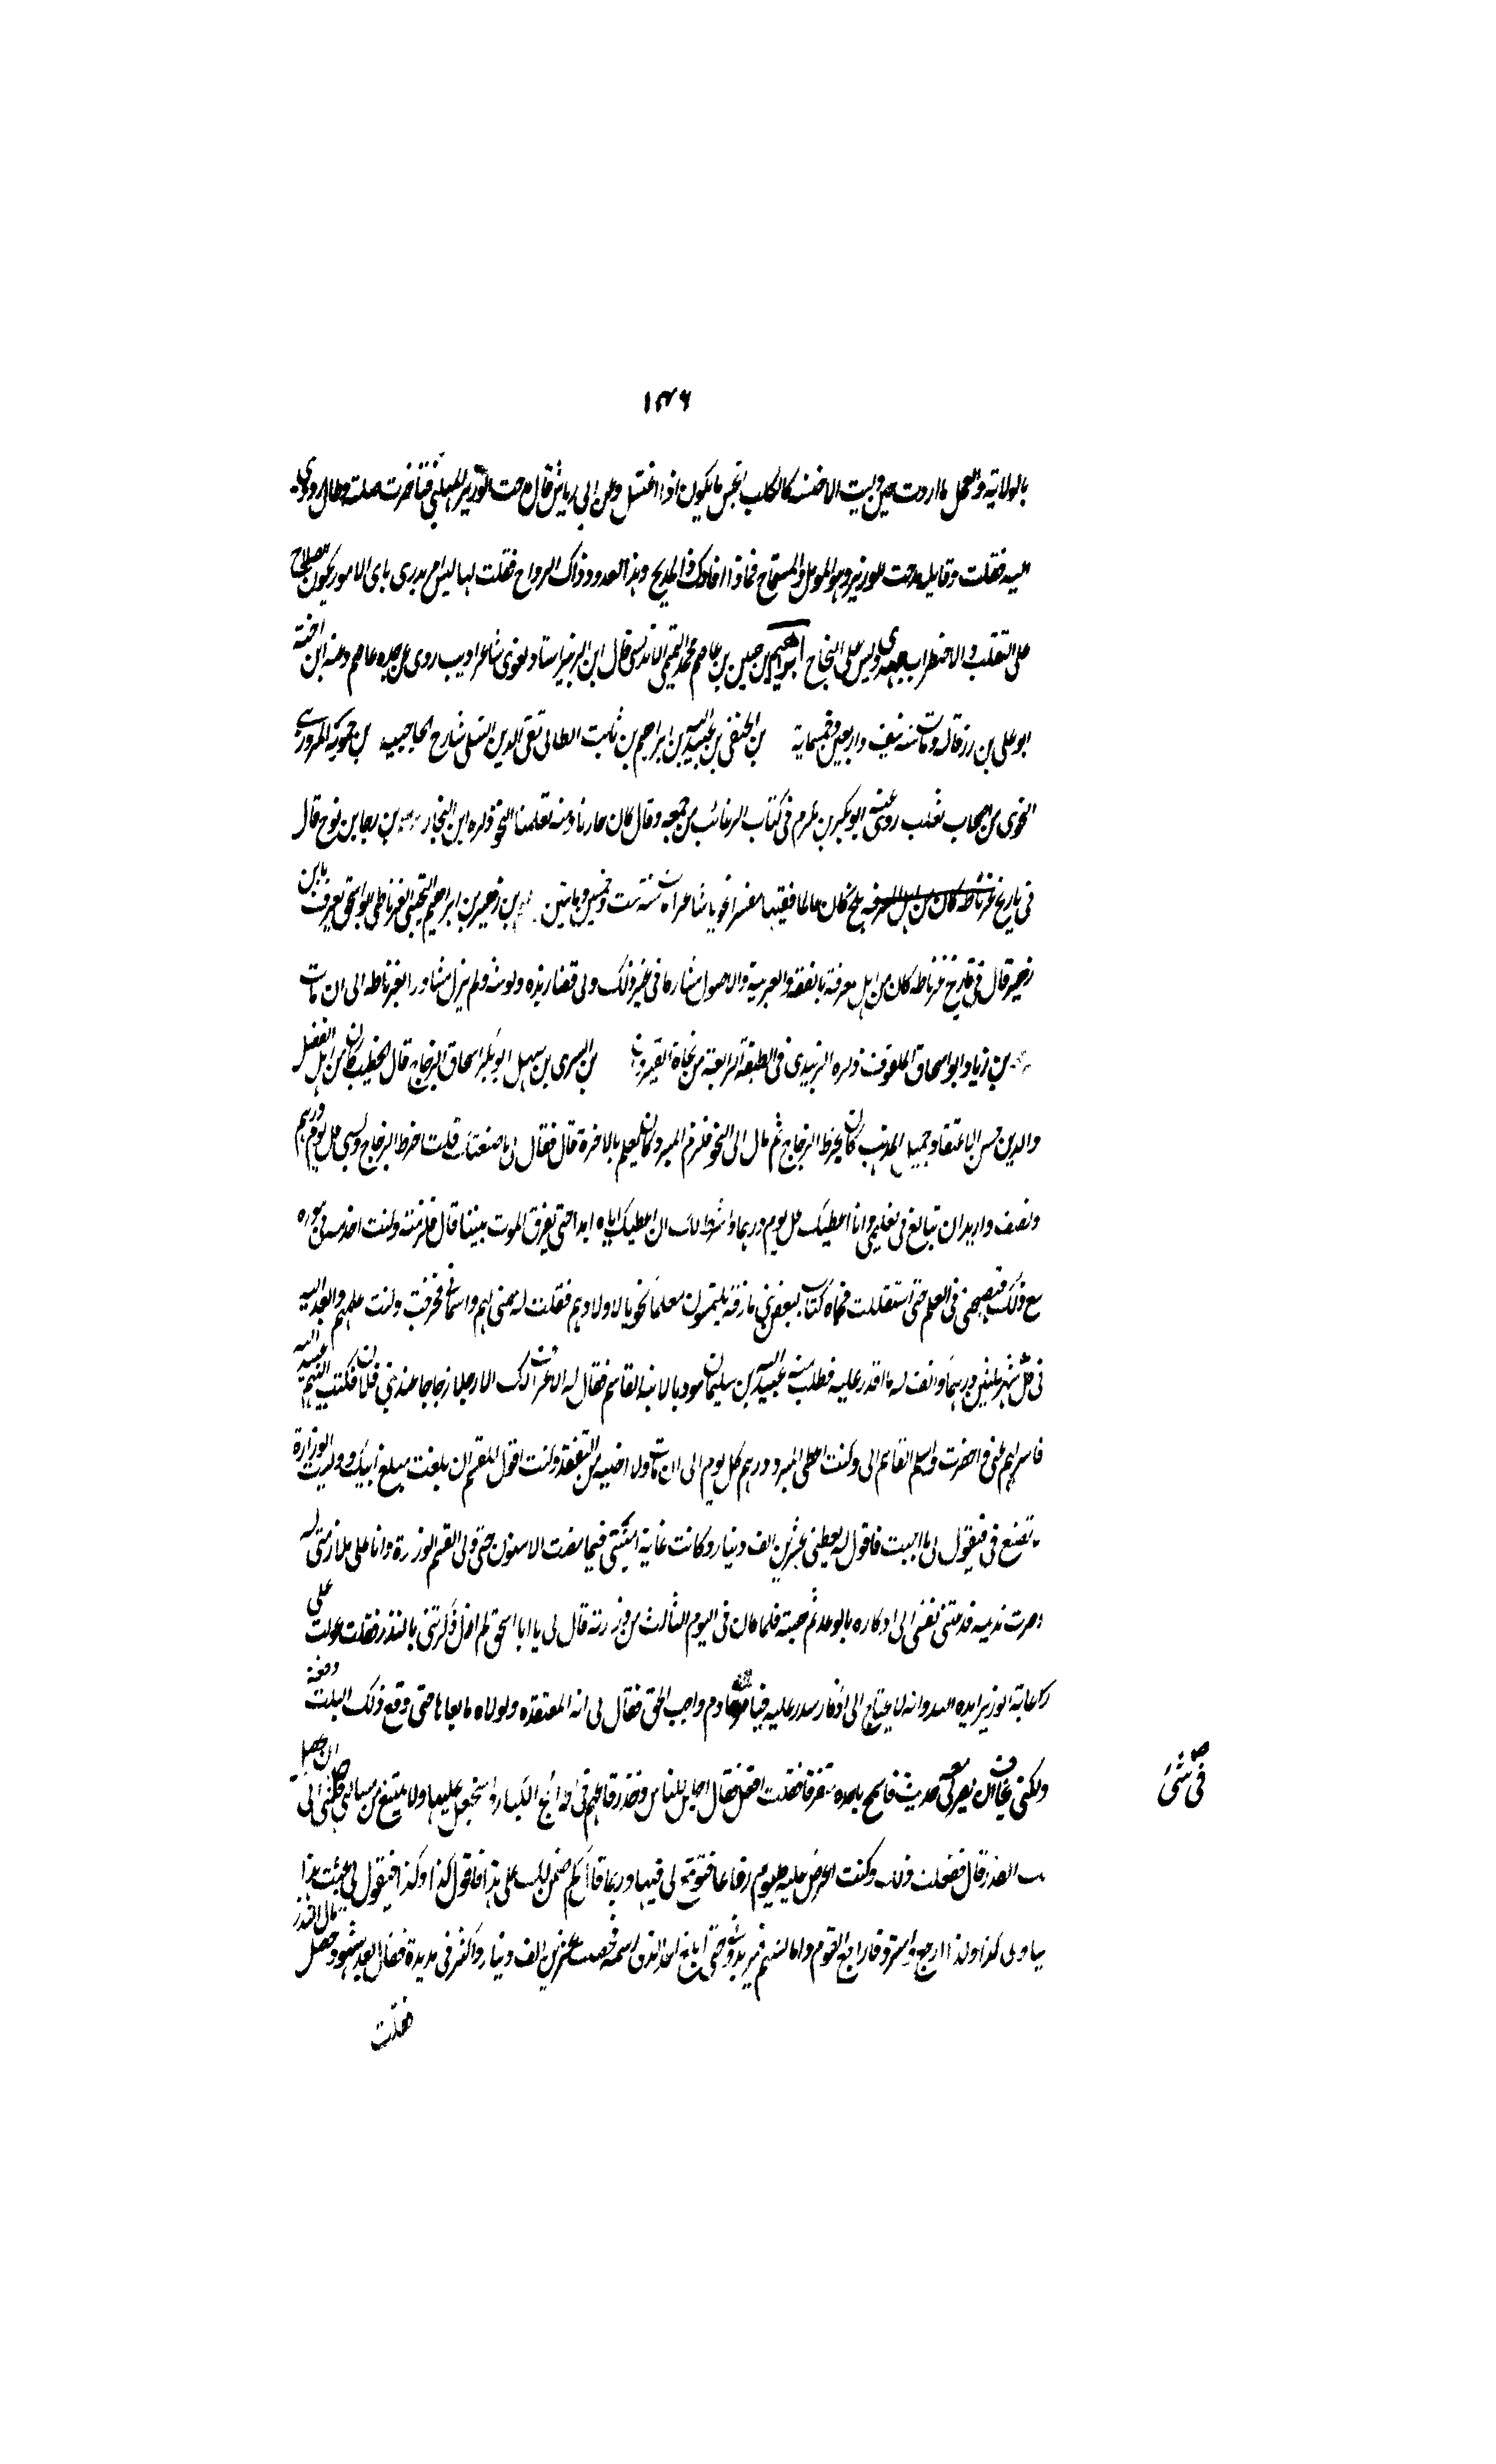 ١٣٦
بالولاية والعمل ما اردت حين وليت الا خسة كالكلب انجس ما يكون اذا اغتسل وعن ابى رياش قال مدحت الوزير المهلبى فتاخرت صلته وطال ترددى
اليه فقلت وقايلة مدحت الوزير وهو المومل والمستماح فماذا افادك ذا المديح وهذا الغدو وذاك الرواح فقلت لها ليس امر يدرى باى الامور يكون الصلاح
على التقلب والاضطراب جهدى وليس على النجاح ابراهيم بن حسين بن عاصم محمد التميمى الاندلسى قال ابن الزبير استاد نحوى شاعر اديب روى عن جده عاصم وعنه ابن اخته
ابو على بن رزقاله ومات سنة نيف واربعين وخمسماية بن الحنفى بن عبيد الله بن ابراهيم بن ثابت الطائى تقى الدين النيلى شارح الحاجبية بن حمويه المروزى
النحوى من اصحاب ثعلب روى عنه ابو بكر بن مكرم فى كتاب الرغائب من جمعه وقال كان جارنا ومنه تعلمنا النحو ذكره ابن النجار بن رجا بن نوح قال
فى تاريخ بلخ كان عالما فقيها مفسرا نحويا شاعرا مات سنة ست وخمسين وماتين بن زهير بن ابراهيم التجيبى الغرناطى ابو اسحق يعرف بابن
زهير قال فى تاريخ غرناطه كان من اهل معرفة بالفقه والعربية والاصول مشاركا فى غير ذلك ولى قضا رنده ولوشه ولم يزل مشاورا بغرناطه الى ان مات
بن زياد ابو اسحاق المكفوف ذكره الزبيدى فى الطبقة الرابعة من نحاة القيروان بن السرى بن سهل ابو بكر اسحاق الزجاج قال الخطيب كان من اهل الفضل
والدين حسن الاعتقاد جميل المذهب كان يخرط الزجاج ثم مال الى النحو فلزم المبرد وكان يعلم بالاجرة قال فقال لى ما صنعتك قلت اخرط الزجاج وكسبى كل يوم درهم
ونصف واريد ان تبالغ فى تعليمى وانا اعطيك كل يوم درهما واشرط لك ان اعطيك اياه ابدا حتى يفرق الموت بيننا قال فلزمته وكنت اخدمه فى اموره
مع ذلك فنصحنى فى العلم حتى استقللت فجاه كتاب بعض بنى مارقة يلتمسون معلما نحويا لاولادهم فقلت له سمنى لهم فاسمانى فخرجت وكنت اعلمهم وانفذ اليه
فى كل شهر ثلثين درهما وانفذ له ما اقدر عليه فطلب منه عبيد الله بن سليمان مودبا لابنه القاسم فقال له لا اعرف لك الا رجلا زجاجا عند بنى فلان فكتب اليهم عبيد الله
فاستنزلهم عنى فاحضرت واسلم القاسم الى وكنت اعطى المبرد درهم كل يوم الى ان مات ولا اخليه من التفقد وكنت اقول للقسم ان بلغت مبلغ ابيك ووليت الوزارة
ما تصنع فى فيقول لى ما احببت فاقول له يعطينى عشرين الف دينار وكانت غاية امنيتى فما مضت الا سنون حتى ولى القسم الوزرة وانا على ملازمتى له
وصرت نديمه فدعتنى نفسى الى اذكاره بالوعد ثم هبته فلما كان فى اليوم الثالث من وزرته قال لى يا ابا اسحق لم ارك ذكرتنى بالنذر فقلت عولت على
رعاية الوزير ايده الله وانه لا يحتاج الى اذكار بنذر عليه فى امر خادم واجب الحق فقال لى انه المعتضد ولولاه ما تعاظمنى وقع ذلك اليك دفعة
ولكنى اخاف ان يصير لى معه حديث فاسمح باخذه متفرقا فقلت افعل فقال اجلس للناس وخذ رقاعهم فى الحوائج الكبار واستجعل عليها ولا تمتنع من مسالتى الى ان يحصل
فى شئ
لك القدر قال ففعلت ذلك وكنت اعرض عليه كل يوم رقاعا فيوقع لى فيها وربما قال كم ضمن لك على هذا فاقول كذا وكذا فيقول لى غبنت هذا
يساوى كذا وكذا ارجع فاستزد فاراجع القوم واماكسهم فيزيدونى حتى ابلغ الحد الذى رسمه فحصلت عشرين الف دينار واكثر فى مديدة فقال بعد شهور حصل مال النذر
فقلت